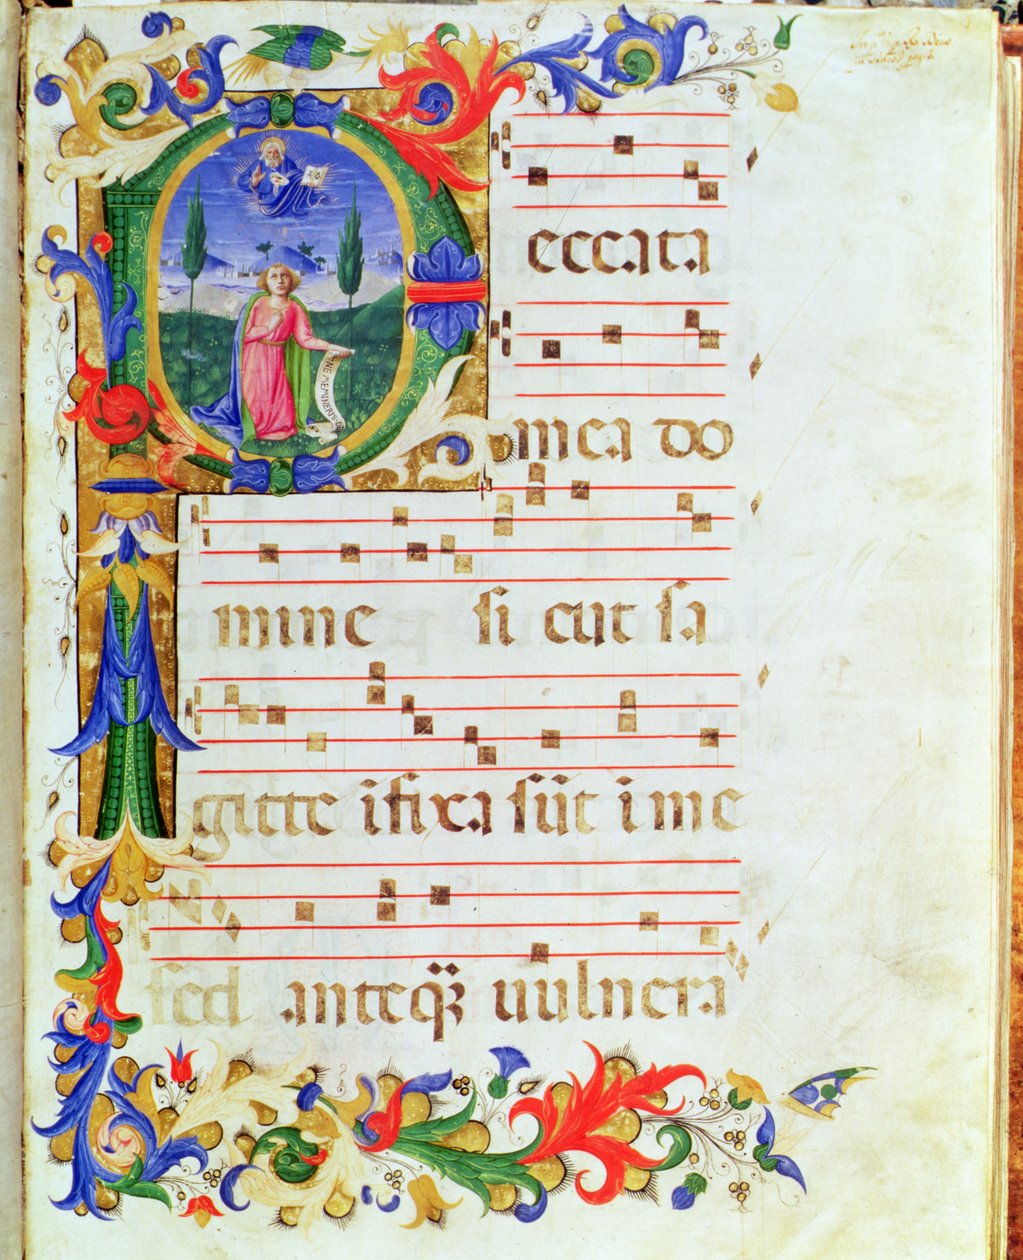 P eccata
mea do
mine si cut sa
gitte ifixa sūt i me
sed anteq̄ȝ uulnera
NE MEMINERIS D